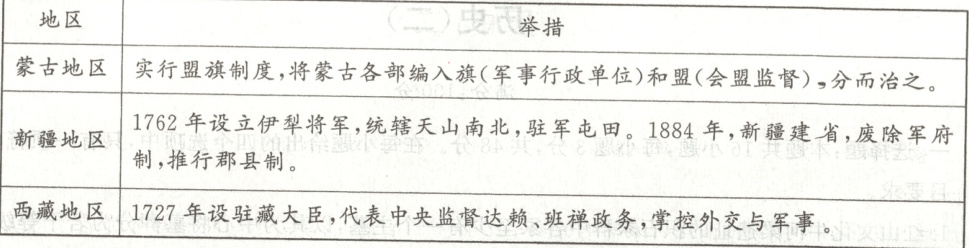 地区 举措
蒙古地区 实行盟旗制度,将蒙古各部编入旗(军事行政单位)和盟(会盟监督),分而治之。
新疆地区 1762年设立伊犁将军,统辖天山南北,驻军屯田。1884年,新疆建省,废除军府
制,推行郡县制。
西藏地区 1727年设驻藏大臣,代表中央监督达赖、班禅政务,掌控外交与军事。